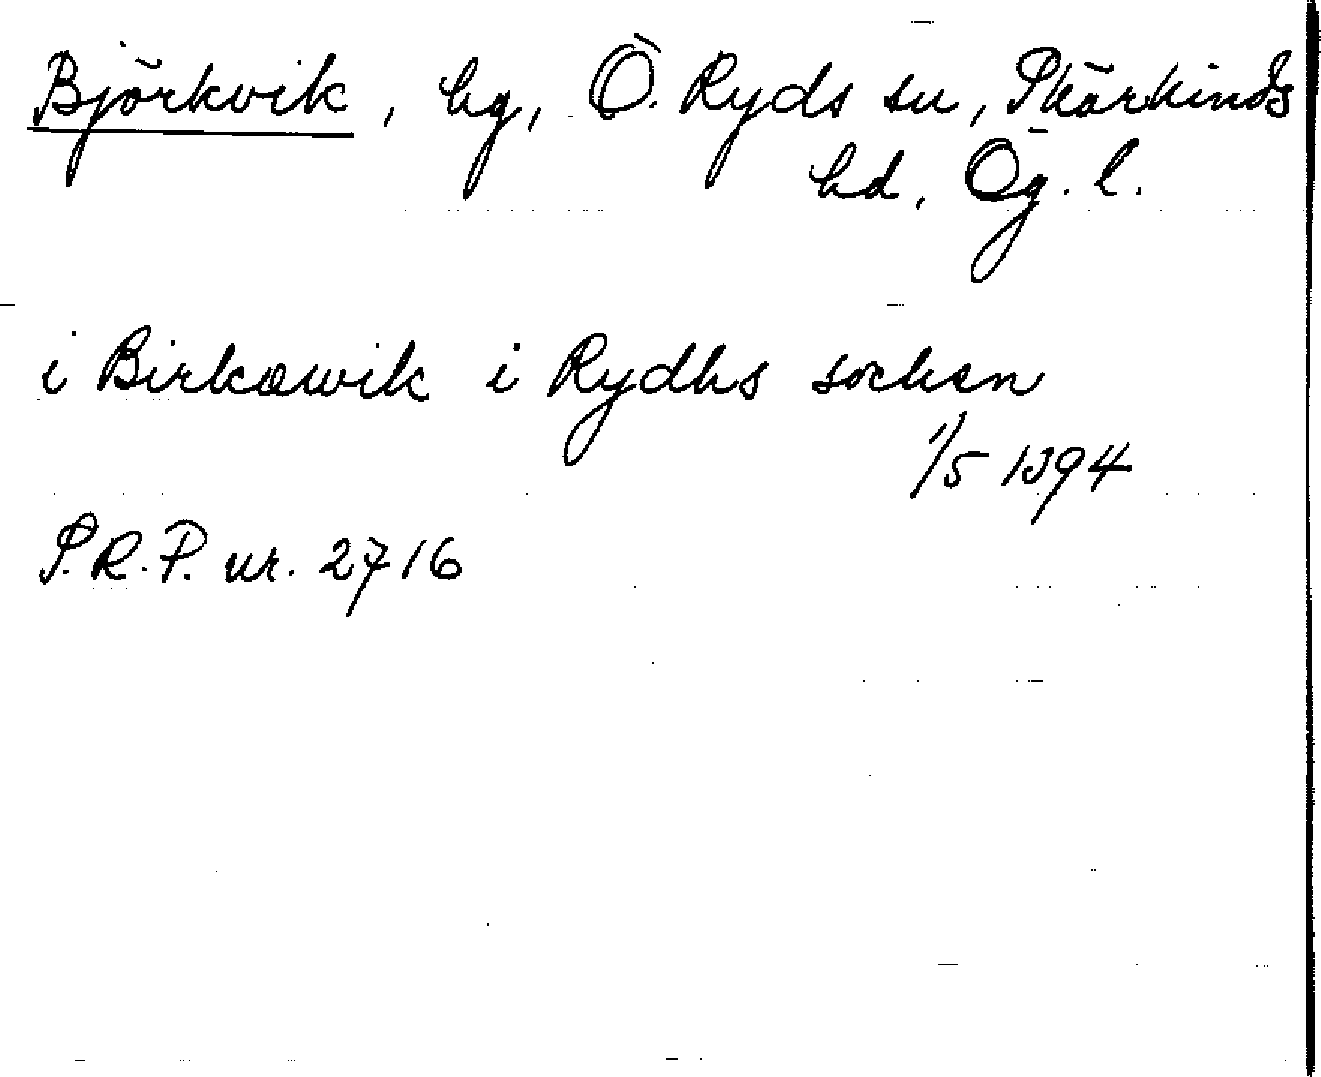 Björkvik, hg, Ö. Ryds sn, Skärkinds
hd, Ög. l.
i Birkawik i Rydhs sochen
1/5 1394
S.R.P. nr. 2716